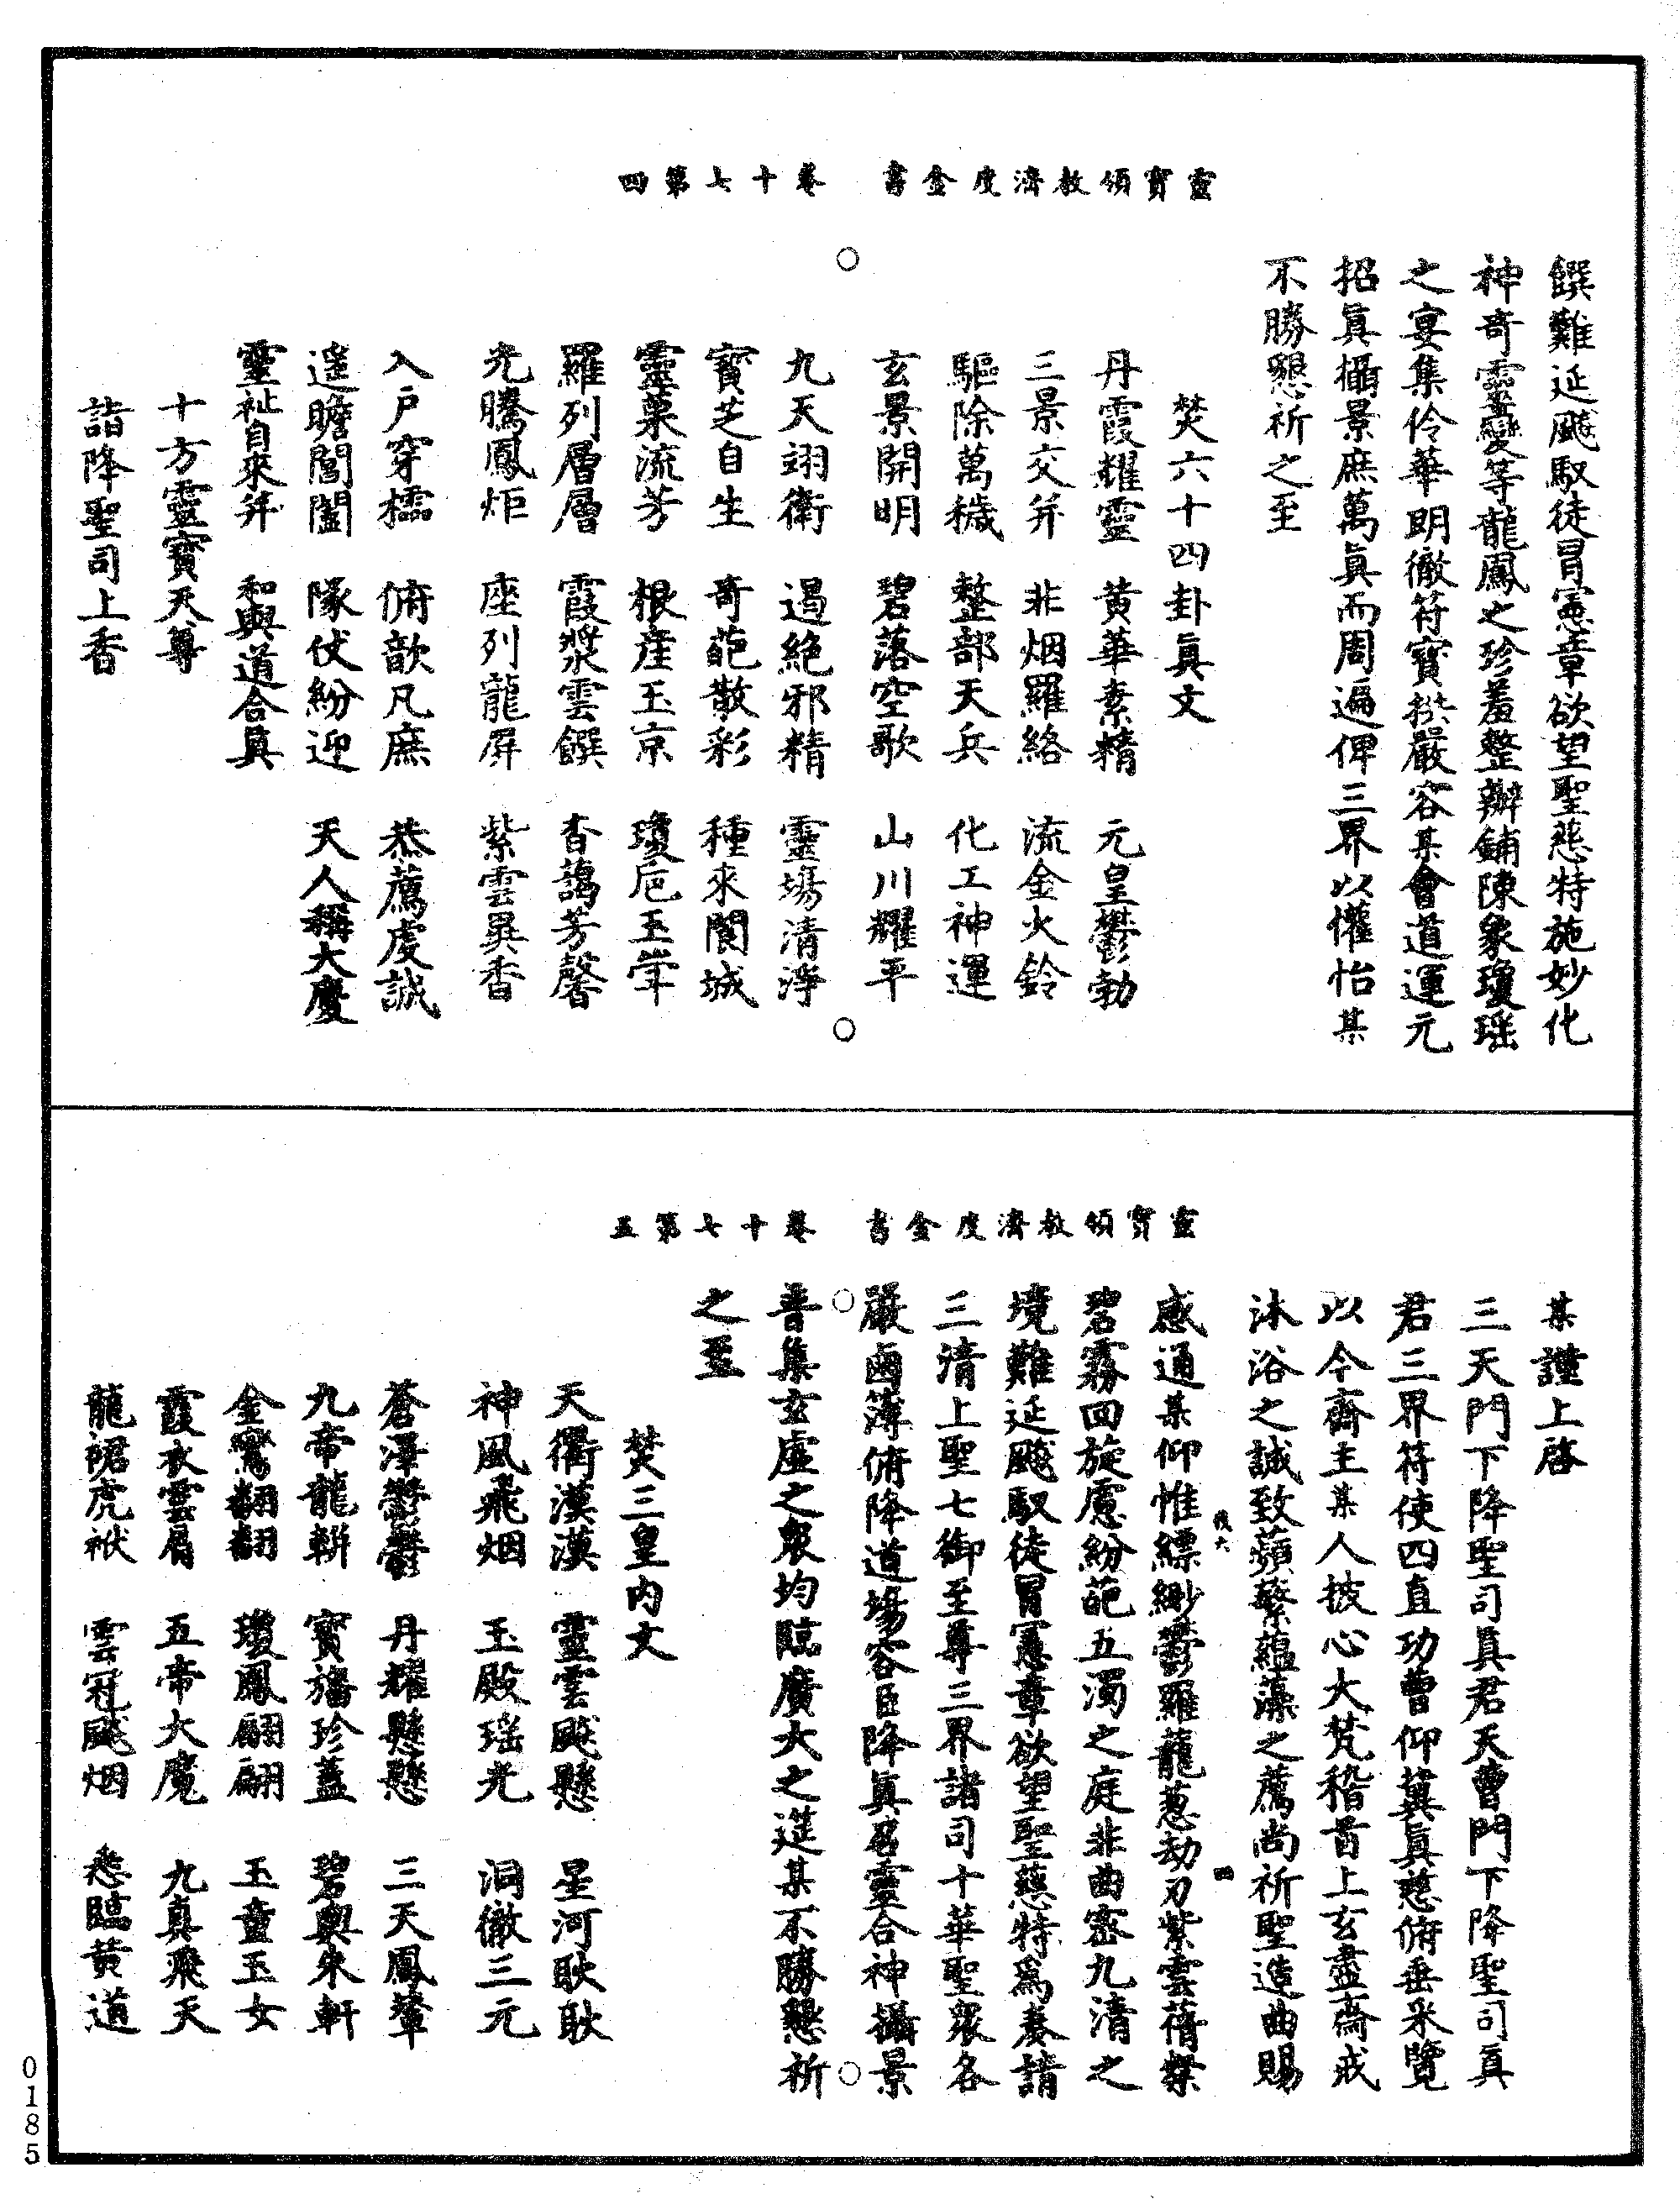 靈寶領教濟度金書　卷十七第四
饌難延飈馭徒冒憲章欲望聖慈特施妙化
神奇靈變等龍鳳之珍羞整辦鋪陳象瓊瑶
之宴集伶華明徹符寶披嚴容某會道運元
招眞攝景庶萬眞而周遍俾三界以懽怡某
不勝懇祈之至
焚六十四卦眞文
丹霞耀靈　黃華素精　元皇鬱勃
三景交并　非烟羅絡　流金火鈴
驅除萬穢　整部天兵　化工神運
玄景開明　碧落空歌　山川耀平
九天翊衛　遏絶邪精　靈場清淨
寳芝自生　奇葩散彩　種來閬城
靈菓流芳　根産玉京　瓊巵玉斝
羅列層層　霞漿雲饌　香藹芳馨
光騰鳳炬　座列龍屏　紫雲異香
入戶穿櫺　俯歆凡庶　恭薦虔誠
遥瞻閶闔　隊仗紛迎　天人稱大慶
靈祉自來并　和與道合眞
十方靈寳天尊
詣降聖司上香
靈寶領教濟度金書　卷十七第五
某謹上啓
三天門下降聖司眞君天曹門下降聖司眞
君三界符使四直功曹仰冀眞慈俯垂采覽
以今齋主某人披心大梵稽首上玄盡齋戒
沐浴之誠致蘋蘩蘊藻之薦尚祈聖造曲賜
感通某仰惟縹緲鬱羅蘢葱劫刃紫雲蓓粲
碧霧回旋慮紛葩五濁之庭非曲密九清之
境難延飈馭徒冒憲章欲望聖慈特爲奏請
三清上聖七御至尊三界諸司十華聖衆各
嚴鹵簿俯降道場容臣降眞召靈合神攝景
普集玄虛之衆均臨廣大之筵某不勝懇祈
之至
焚三皇內文
天衢漠漠　靈雲飈懸　星河耿耿
神風飛烟　玉殿瑶光　洞徹三元
蒼澤鬱鬱　丹耀懸懸　三天鳳輦
九帝龍輧　寳旛珍蓋　碧輿朱軒
金鸞翻翻　瓊鳳翩翩　玉童玉女
霞衣雲肩　五帝大魔　九眞飛天
龍裙虎袱　雲冠飈烟　悉臨黃道
0185